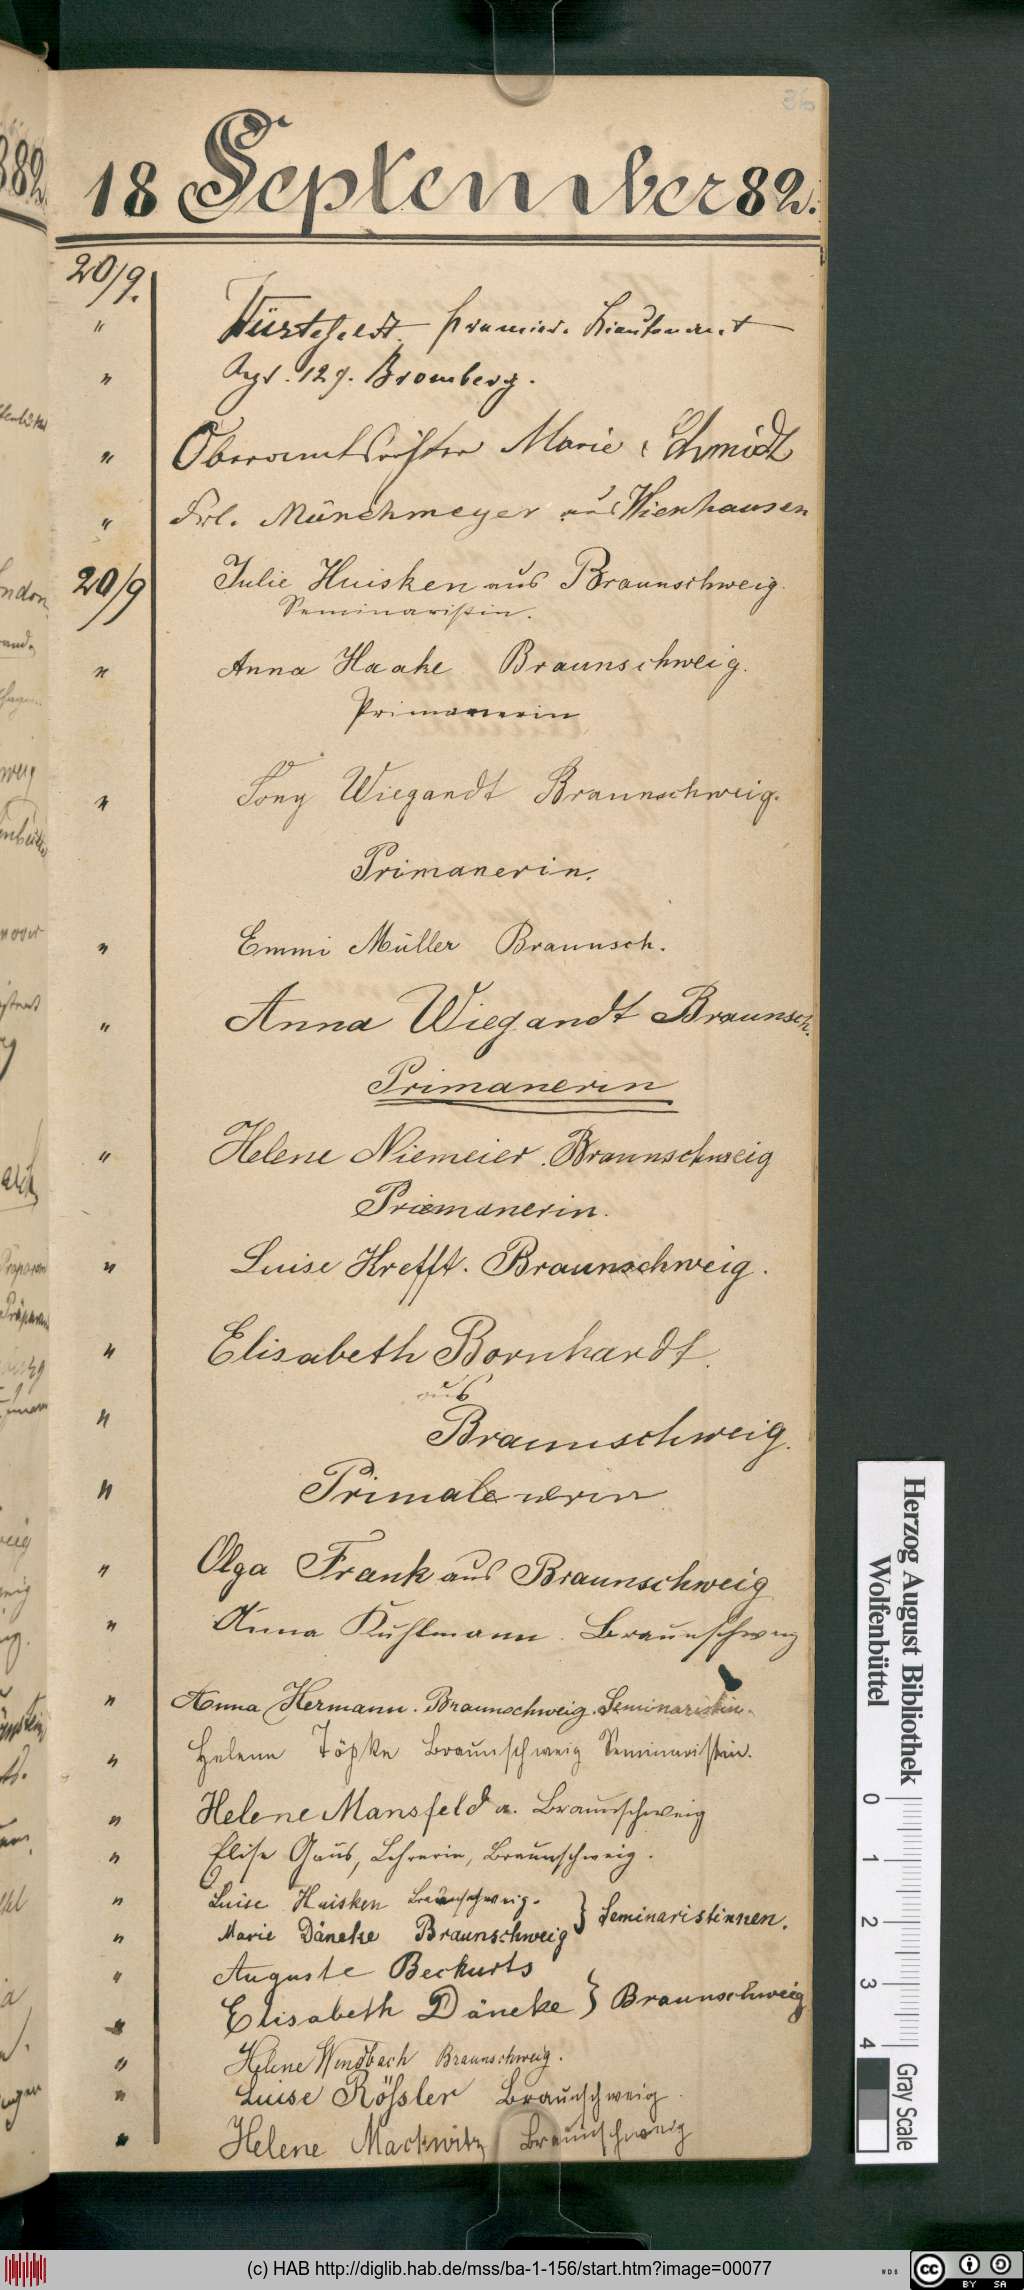 36
18 September 82.
20/9.
" Premier-Lieutenant
" Rgt. 129. Bromberg.
" Marie Schmidt
" Frl. Münchmeyer aus Wienhausen
20/9 Julie Huisken aus Braunschweig.
Seminaristin.
" Anna Haake Braunschweig.
Primanerin
" Tony Wiegandt Braunschweig.
Primanerin.
" Emmi Müller Braunsch.
" Anna Wiegandt Braunsch.
Primanerin
" Helene Niemeier. Braunschweig
Primanerin.
" Luise Krefft. Braunschweig.
" Elisabeth Bornhardt.
aus
" Braunschweig.
"
" Olga Frank aus Braunschweig
" Anna Kuhlmann. Braunschweig
" Anna Hermann. Braunschweig. Seminaristin.
" Helene Töpke Braunschweig Seminaristin.
" Helene Mansfeld a. Braunschweig
" Elise Gaus, Lehrerin, Braunschweig.
" Luise Huisken Braunschweig. } Seminaristinnen.
" Marie Däneke Braunschweig
" Auguste Beckurts } Braunschweig
" Elisabeth Däneke
" Helene Windbach Braunschweig.
" Luise Rößler Braunschweig.
" Helene Mackwitz Braunschweig
Herzog August Bibliothek
Wolfenbüttel
0 1 2 3 4
Gray Scale
(c) HAB http://diglib.hab.de/mss/ba-1-156/start.htm?image=00077
WDB
cc BY SA